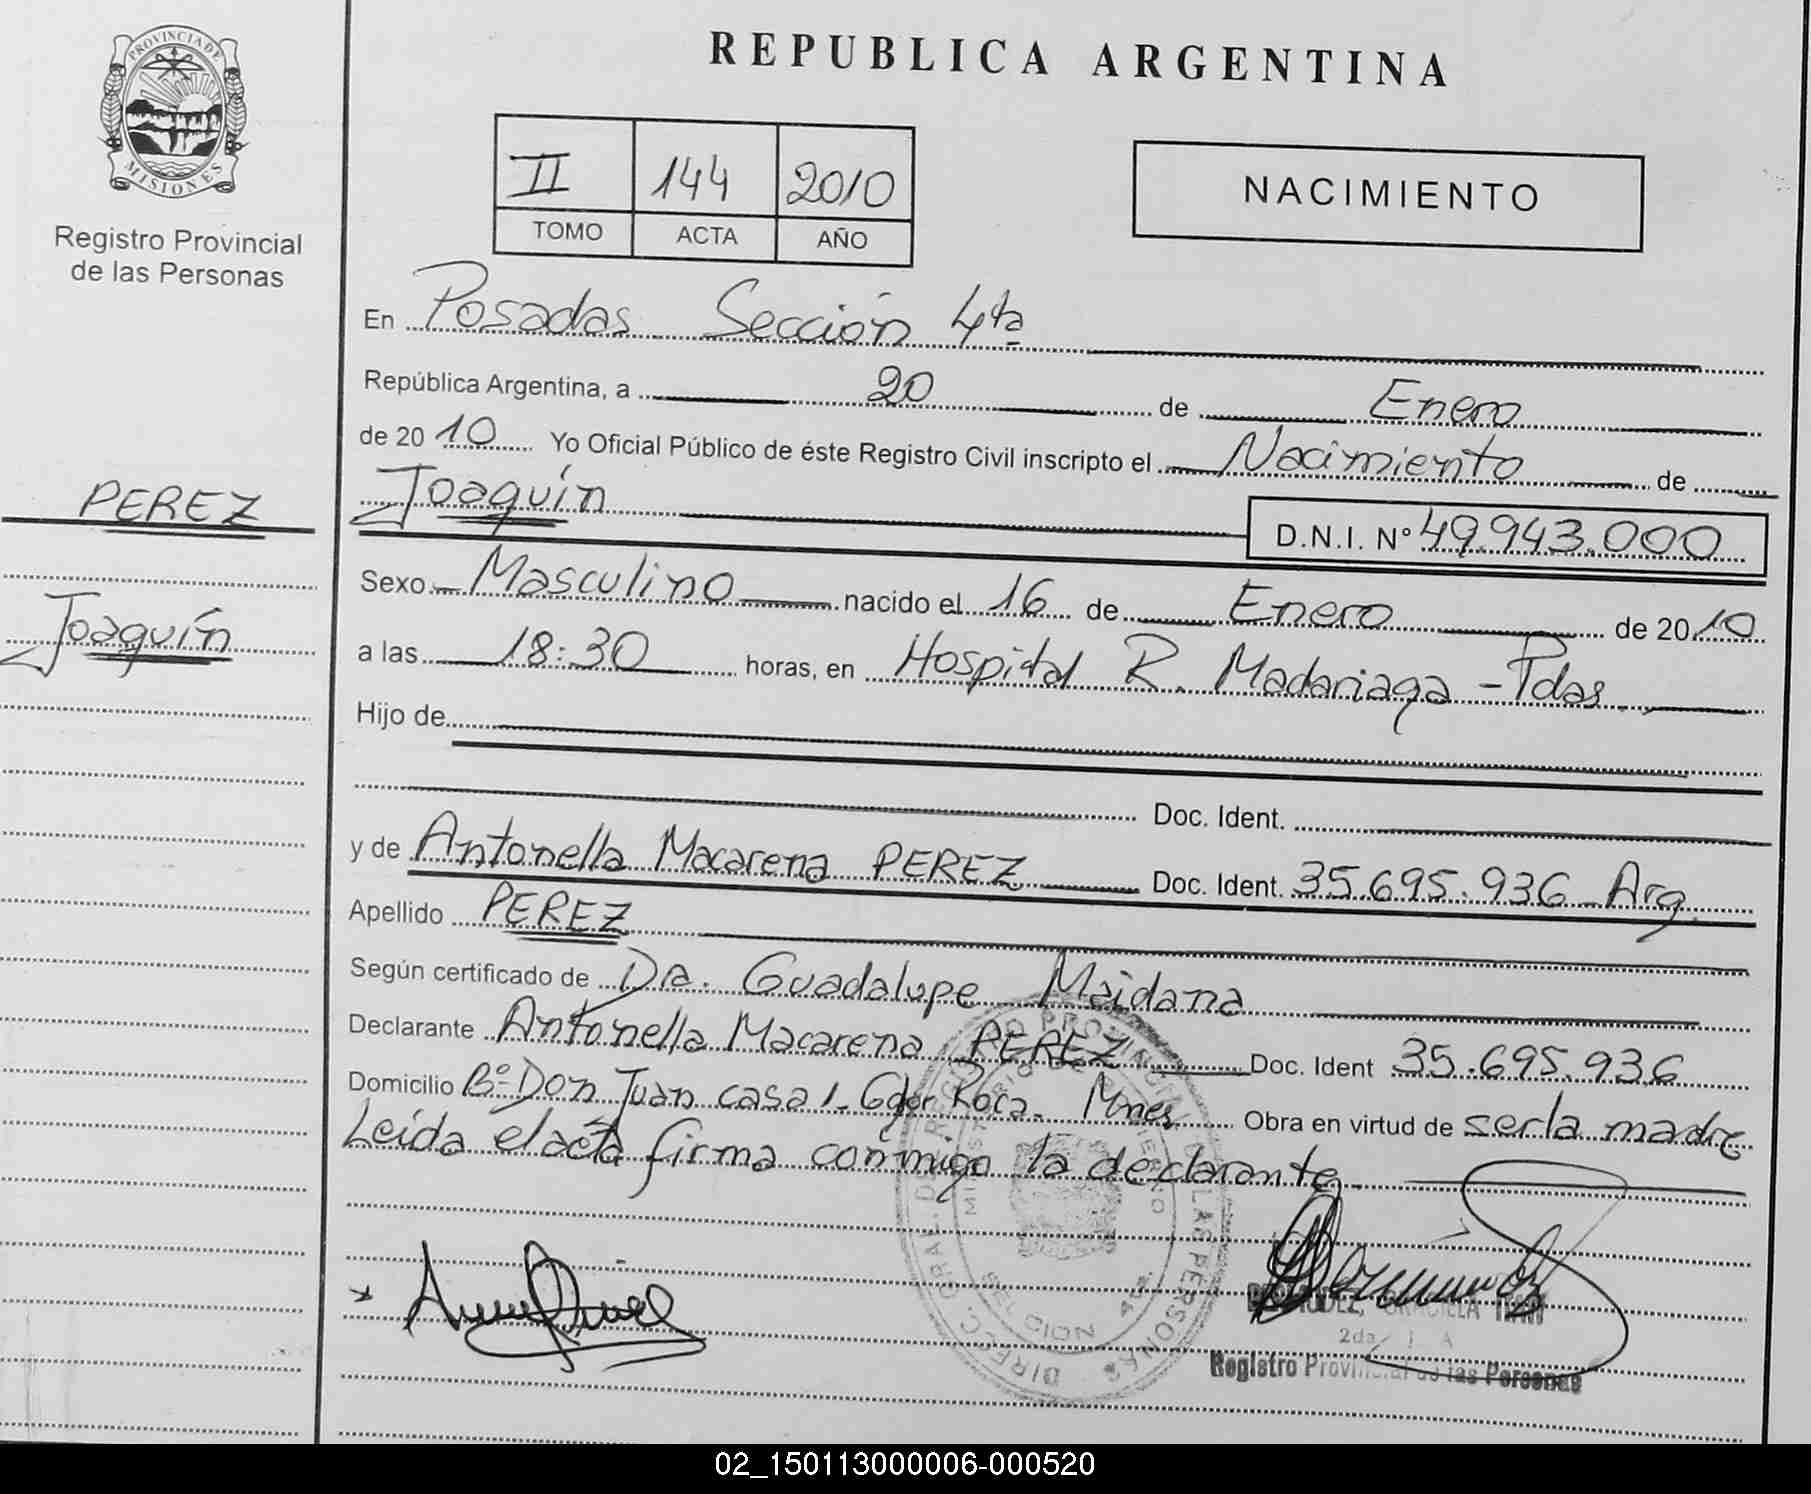 PROVINCIA DE
MISIONES
Registro Provincial
de las Personas
PEREZ
Joaquín
REPUBLICA ARGENTINA
II 144 2010
TOMO ACTA AÑO
NACIMIENTO
En Posadas Sección 4ta
República Argentina, a 20 de Enero
de 2010 Yo Oficial Público de éste Registro Civil inscripto el Nacimiento de
Joaquín D.N.I. N° 49.943.000
Sexo Masculino nacido el 16 de Enero de 2010
a las 18:30 horas, en Hospital R. Madariaga - Pdas
Hijo de
Doc. Ident.
y de Antonella Macarena PEREZ Doc. Ident. 35.695.936 Arg.
Apellido PEREZ
Según certificado de Dra. Guadalupe Maidana
Declarante Antonella Macarena PEREZ Doc. Ident 35.695.936
Domicilio B° Don Juan casa 1- Gdor Roca. Mnes Obra en virtud de ser la madre
Leída el acta firma conmigo la declarante.
Registro Provincial de las Personas
02_150113000006-000520